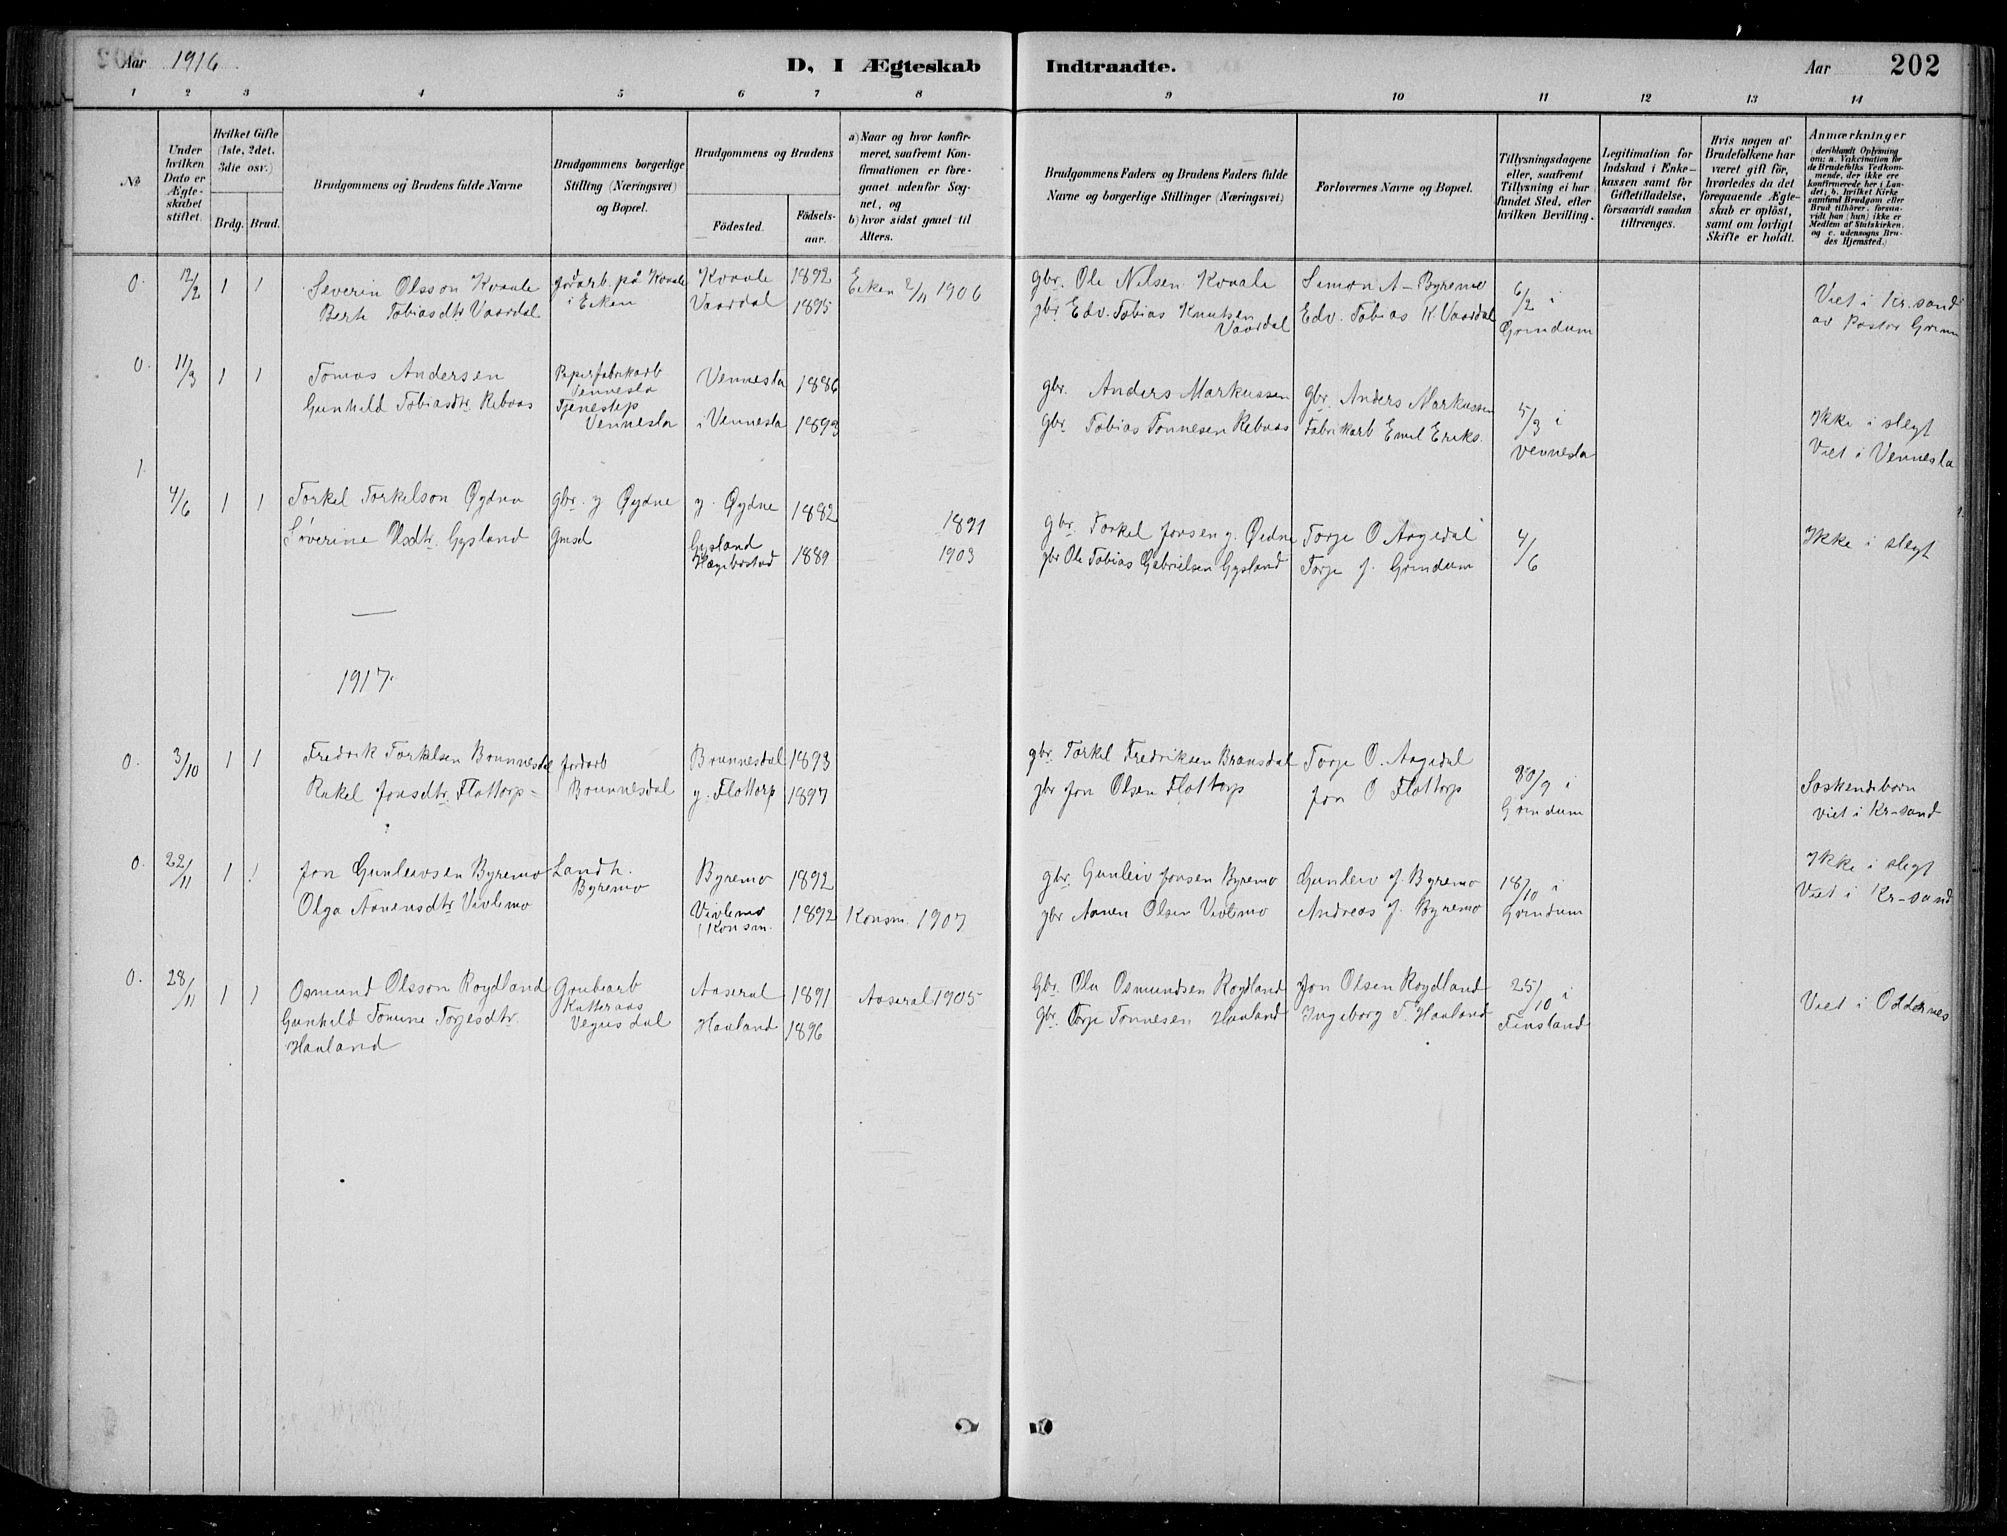 Aar 1916
D, I Ægteskab Indtraadte.
Aar 202
1 2 3 4 5 6 7 8 9 10 11 12 13 14
No
Under hvilken Dato er Ægteskabet stiftet.
Hvilket Gifte (1ste, 2det, 3die osv.)
Brdg. Brud.
Brudgommens og Brudens fulde Navne
Brudgommens borgerlige Stilling (Næringsvei) og Bopæl.
Brudgommens og Brudens
Födested. Födselsaar.
a) Naar og hvor konfirmeret, saafremt Konfirmationen er foregaaet udenfor Sognet, og
b) hvor sidst gaaet til Alters.
Brudgommens Faders og Brudens Faders fulde Navne og borgerlige Stillinger (Næringsvei)
Forlovernes Navne og Bopæl.
Tillysningsdagene eller, saafremt Tillysning ei har fundet Sted, efter hvilken Bevilling.
Legitimation for Indskud i Enkekassen samt for Giftetilladelse, forsaavidt saadan tiltrænges.
Hvis nogen af Brudefolkene har været gift för, hvorledes da det foregaaende Ægteskab er oplöst, samt om lovligt Skifte er holdt.
Anmærkninger
(deriblandt Oplysning om: a. Vakcination for de Brudefolks Vedkommende, der ikke ere konfirmerede her i Landet; b. hvilket Kirkesamfund Brudgom eller Brud tilhörer, forsaavidt han (hun) ikke er Medlem af Statskirken, og c. udensogns Brudes Hjemsted.)
0. 12/2 1 1 Severin Olsson Kvaale jordarb. på Kvaale Kvaale 1892 Eiken 2/11 1906 gbr. Ole Nilsen Kvaale Simon A-Byremo 6/2 i
Berte Tobiasdtr Vaardal i Eiken Vaardal 1895 gbr. Edv. Tobias Knutsen Vaardal Edv. Tobias K. Vaardal Grindum Viet i Kr.sand av Pastor
0. 11/3 1 1 Tomas Andersen Papirfabrikarb Vennesla Vennesla 1886 gbr. Anders Markussen gbr. Anders Markussen 5/3 i
Gunhild Tobiasdtr. Rebaas Tjenestep Vennesla i Vennesla 1893 gbr Tobias Tønnesen Rebaas Fabrikarb Emil Eriks. Vennesla Ikke i slegt Viet i Vennesla
1. 4/6 1 1 Torkel Torkelson Øydna gbr. y Øydne y. Øydne 1882 1891 gbr. Torkel Jonsen y. Øidne Torje O Aagedal 4/6
Søverine Olsdtr. Gysland Gmsd Gysland Hægebostad 1889 1903 gbr Ole Tobias Gabrielsen Gysland Torje J. Grindum Ikke i slegt
1917.
0. 3/10 1 1 Fredrik Torkelsen Brunnesdal jordarb Brunnesdal 1893 gbr. Torkel Fredriksen Bransdal Torje O. Aagedal 30/9 i
Rakel Jonsdtr. Flottorp - Brunnesdal y. Flottorp 1897 gbr Jon Olsen Flottorp Jon O Flottorp Grindum Søskendebørn viet i Kr-sand
0. 22/11 1 1 Jon Gunleivsen Byremo Landh. Byremo Byremo 1892 gbr. Gunleiv Jonsen Byremo Gunleiv J Byremo 18/10 i
Olga Aanensdtr Vivlemo Vivlemo i Konsm. 1892 Konsm. 1907 gbr Aanen Olsen Vivlemo Andreas J. Byremo Grindum Ikke i slegt Viet i Kr-sand
0. 28/11 1 1 Osmund Olsson Røydland Grubearb Aaseral 1891 Aaseral 1905 Gbr. Ola Osmundsen Røydland Jon Olsen Røydland 25/10 i
Gunhild Tomine Torjesdtr. Hauland Katteraas Vegusdal Hauland 1896 gbr. Torje Tonnesen Hauland Ingeborg T. Hauland Finsland Viet i Oddernes